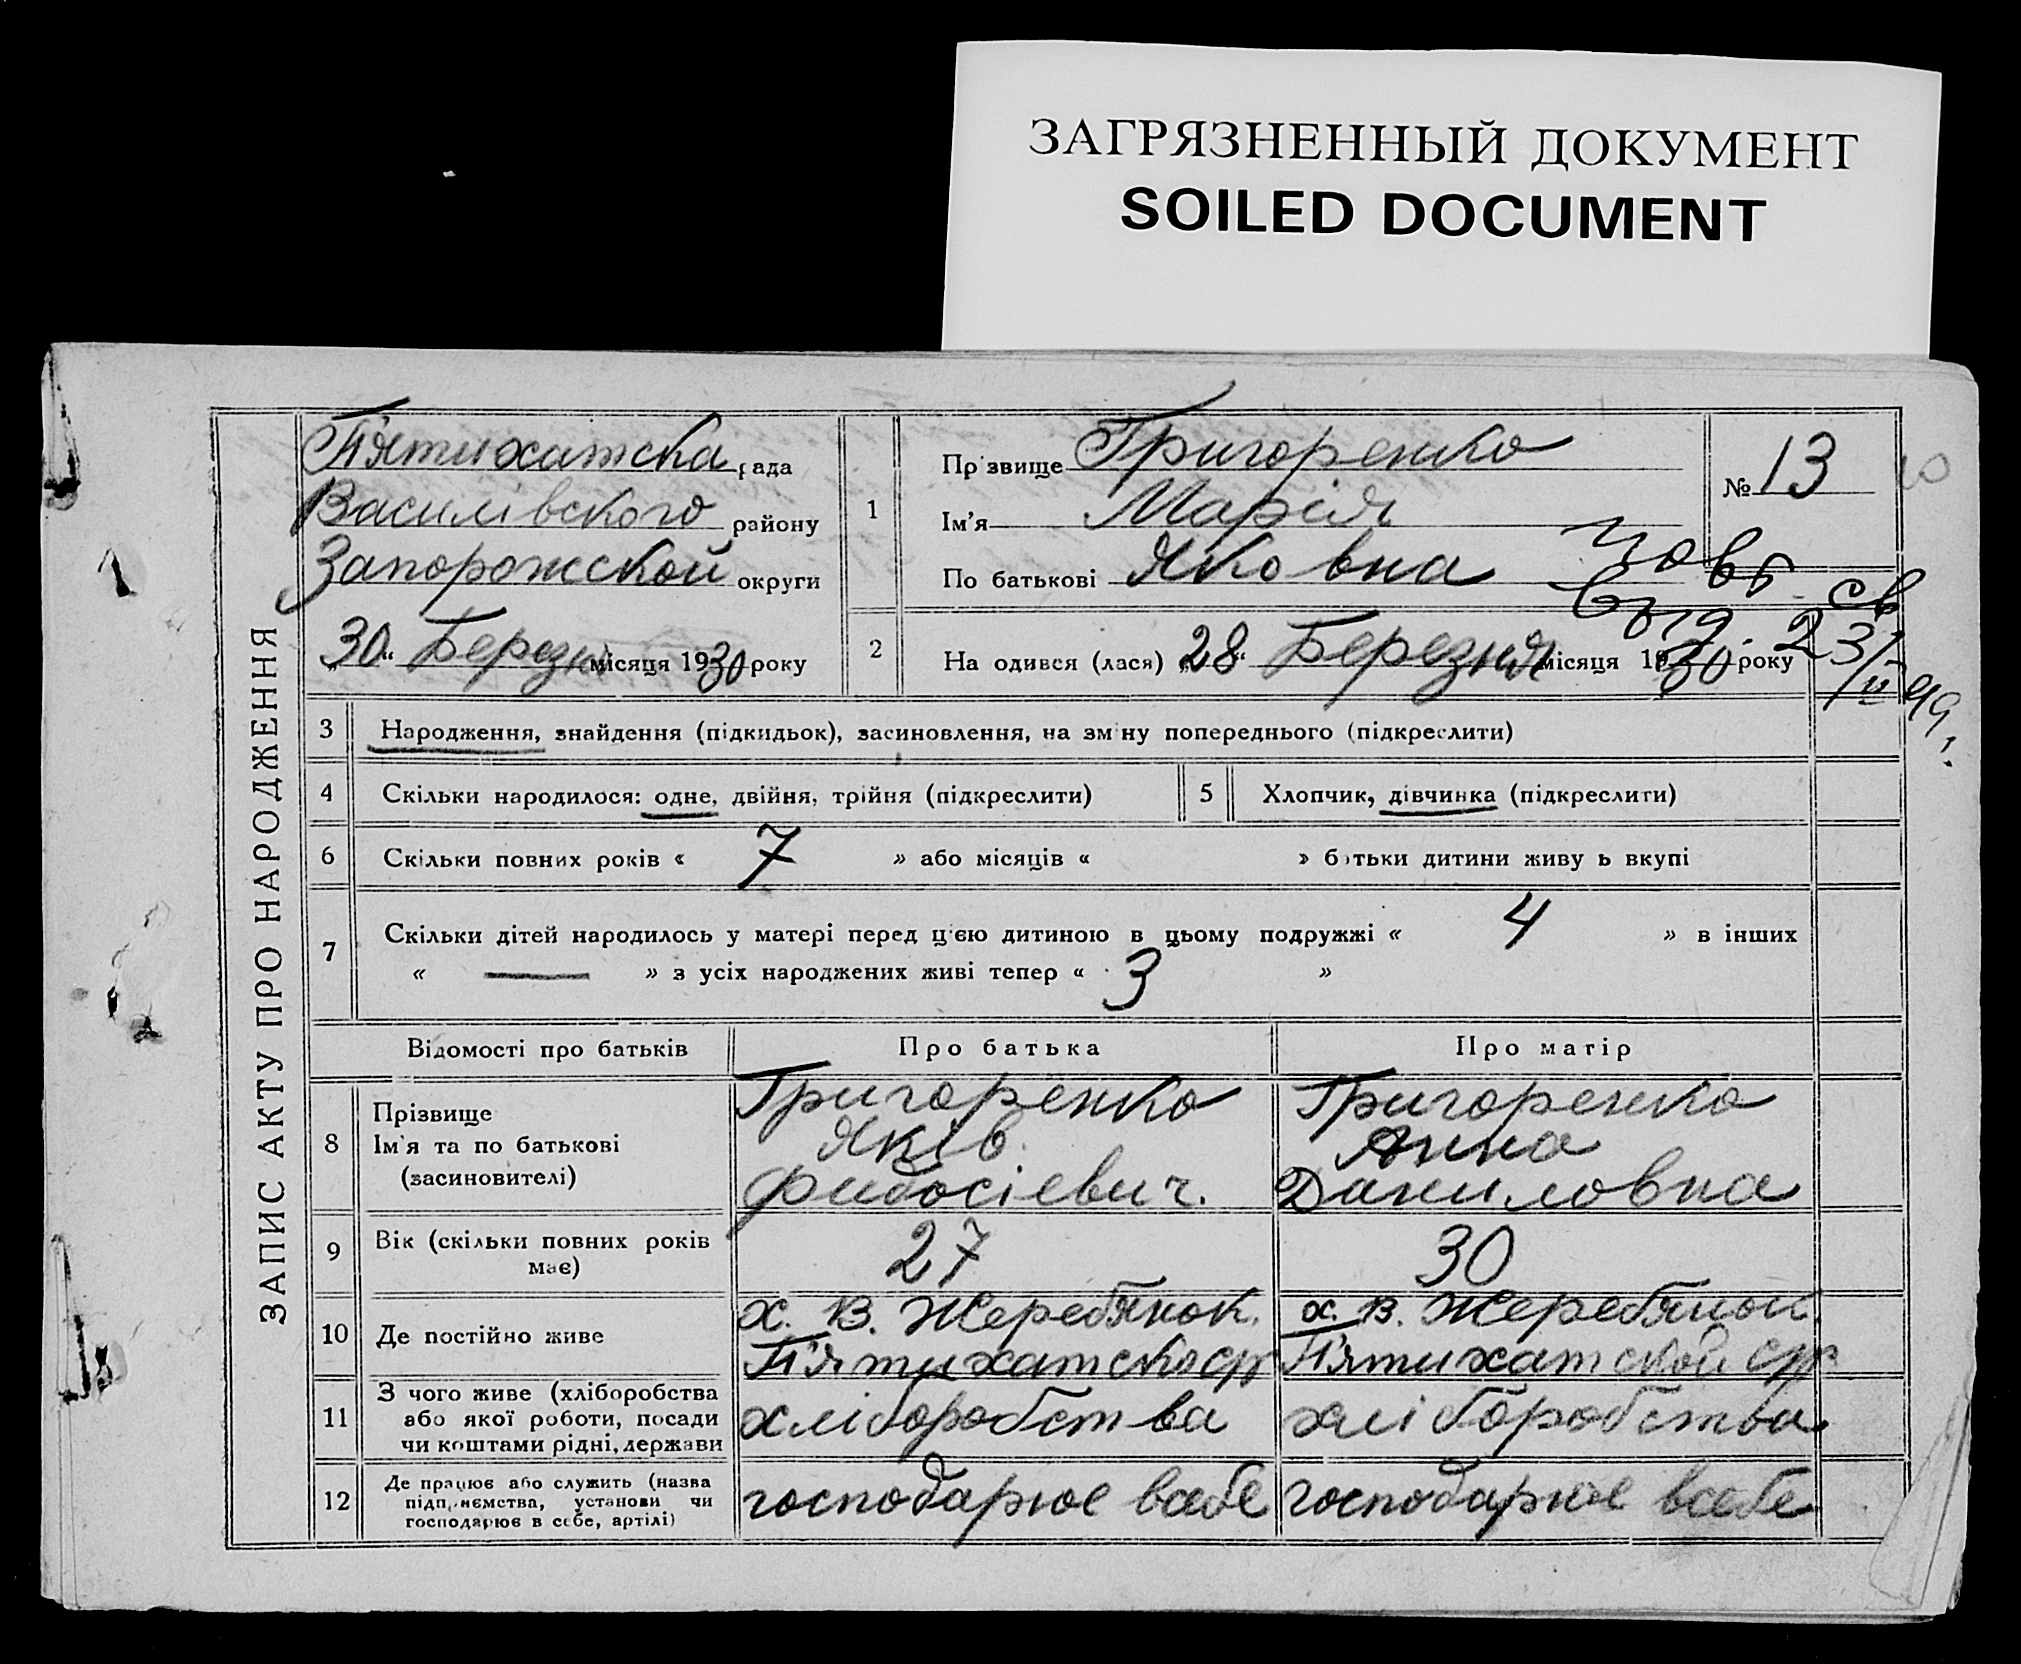 ЗАГРЯЗНЕННЫЙ ДОКУМЕНТ
SOILED DOCUMENT
ЗАПИС АКТУ ПРО НАРОДЖЕННЯ
П'ятихатска рада
Василівского району
Запорожской округи
„30“ Березня місяця 1930 року
1
Прізвище Григоренко
Ім'я Марія
По батькові Яковна
№ 13
повт. св
выд. 23/II 49.
2
На одився (лася) „28“ Березня місяця 1930 року
3 Народження, знайдення (підкидьок), засиновлення, на зміну попереднього (підкреслити)
4 Скільки народилося: одне, двійня, трійня (підкреслити)
5 Хлопчик, дівчинка (підкреслити)
6 Скільки повних років « 7 » або місяців « » батьки дитини живуть вкупі
7 Скільки дітей народилось у матері перед цією дитиною в цьому подружжі « 4 » в інших
« — » з усіх народжених живі тепер « 3 »
Відомості про батьків Про батька Про матір
8 Прізвище
Ім'я та по батькові
(засиновителі)
Григоренко
Яків
Фидосієвич.
Григоренко
Анна
Даниловна
9 Вік (скільки повних років
має)
27
30
10 Де постійно живе
х. В. Жеребянок.
П'ятихатско ср
х. В. Жеребянок.
П'ятихатской ср
11 З чого живе (хліборобства
або якої роботи, посади
чи коштами рідні, держави
хліборобства
хліборобства
12 Де працює або служить (назва
підприємства, установи чи
господарює в себе, артілі)
господарює всебе
господарює всебе